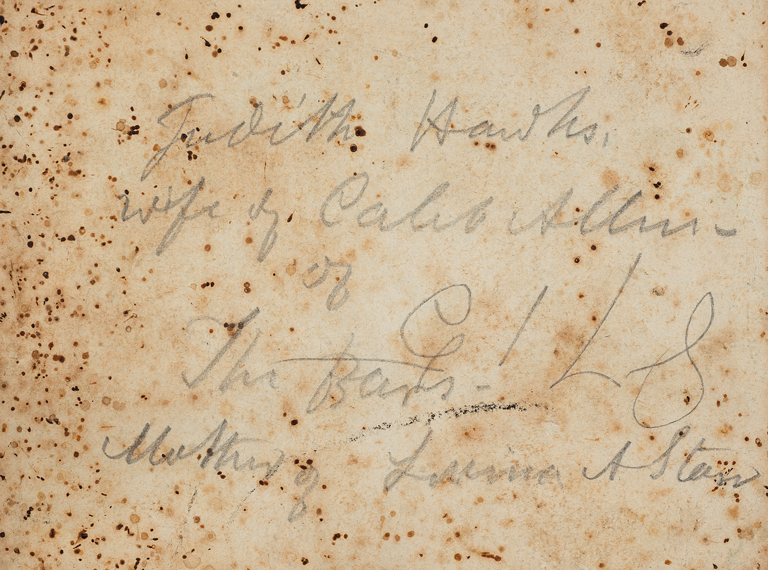 Judith Hawks.
wife of Caleb Allen -
of
The Bars -
Mother of Lorina A Starr